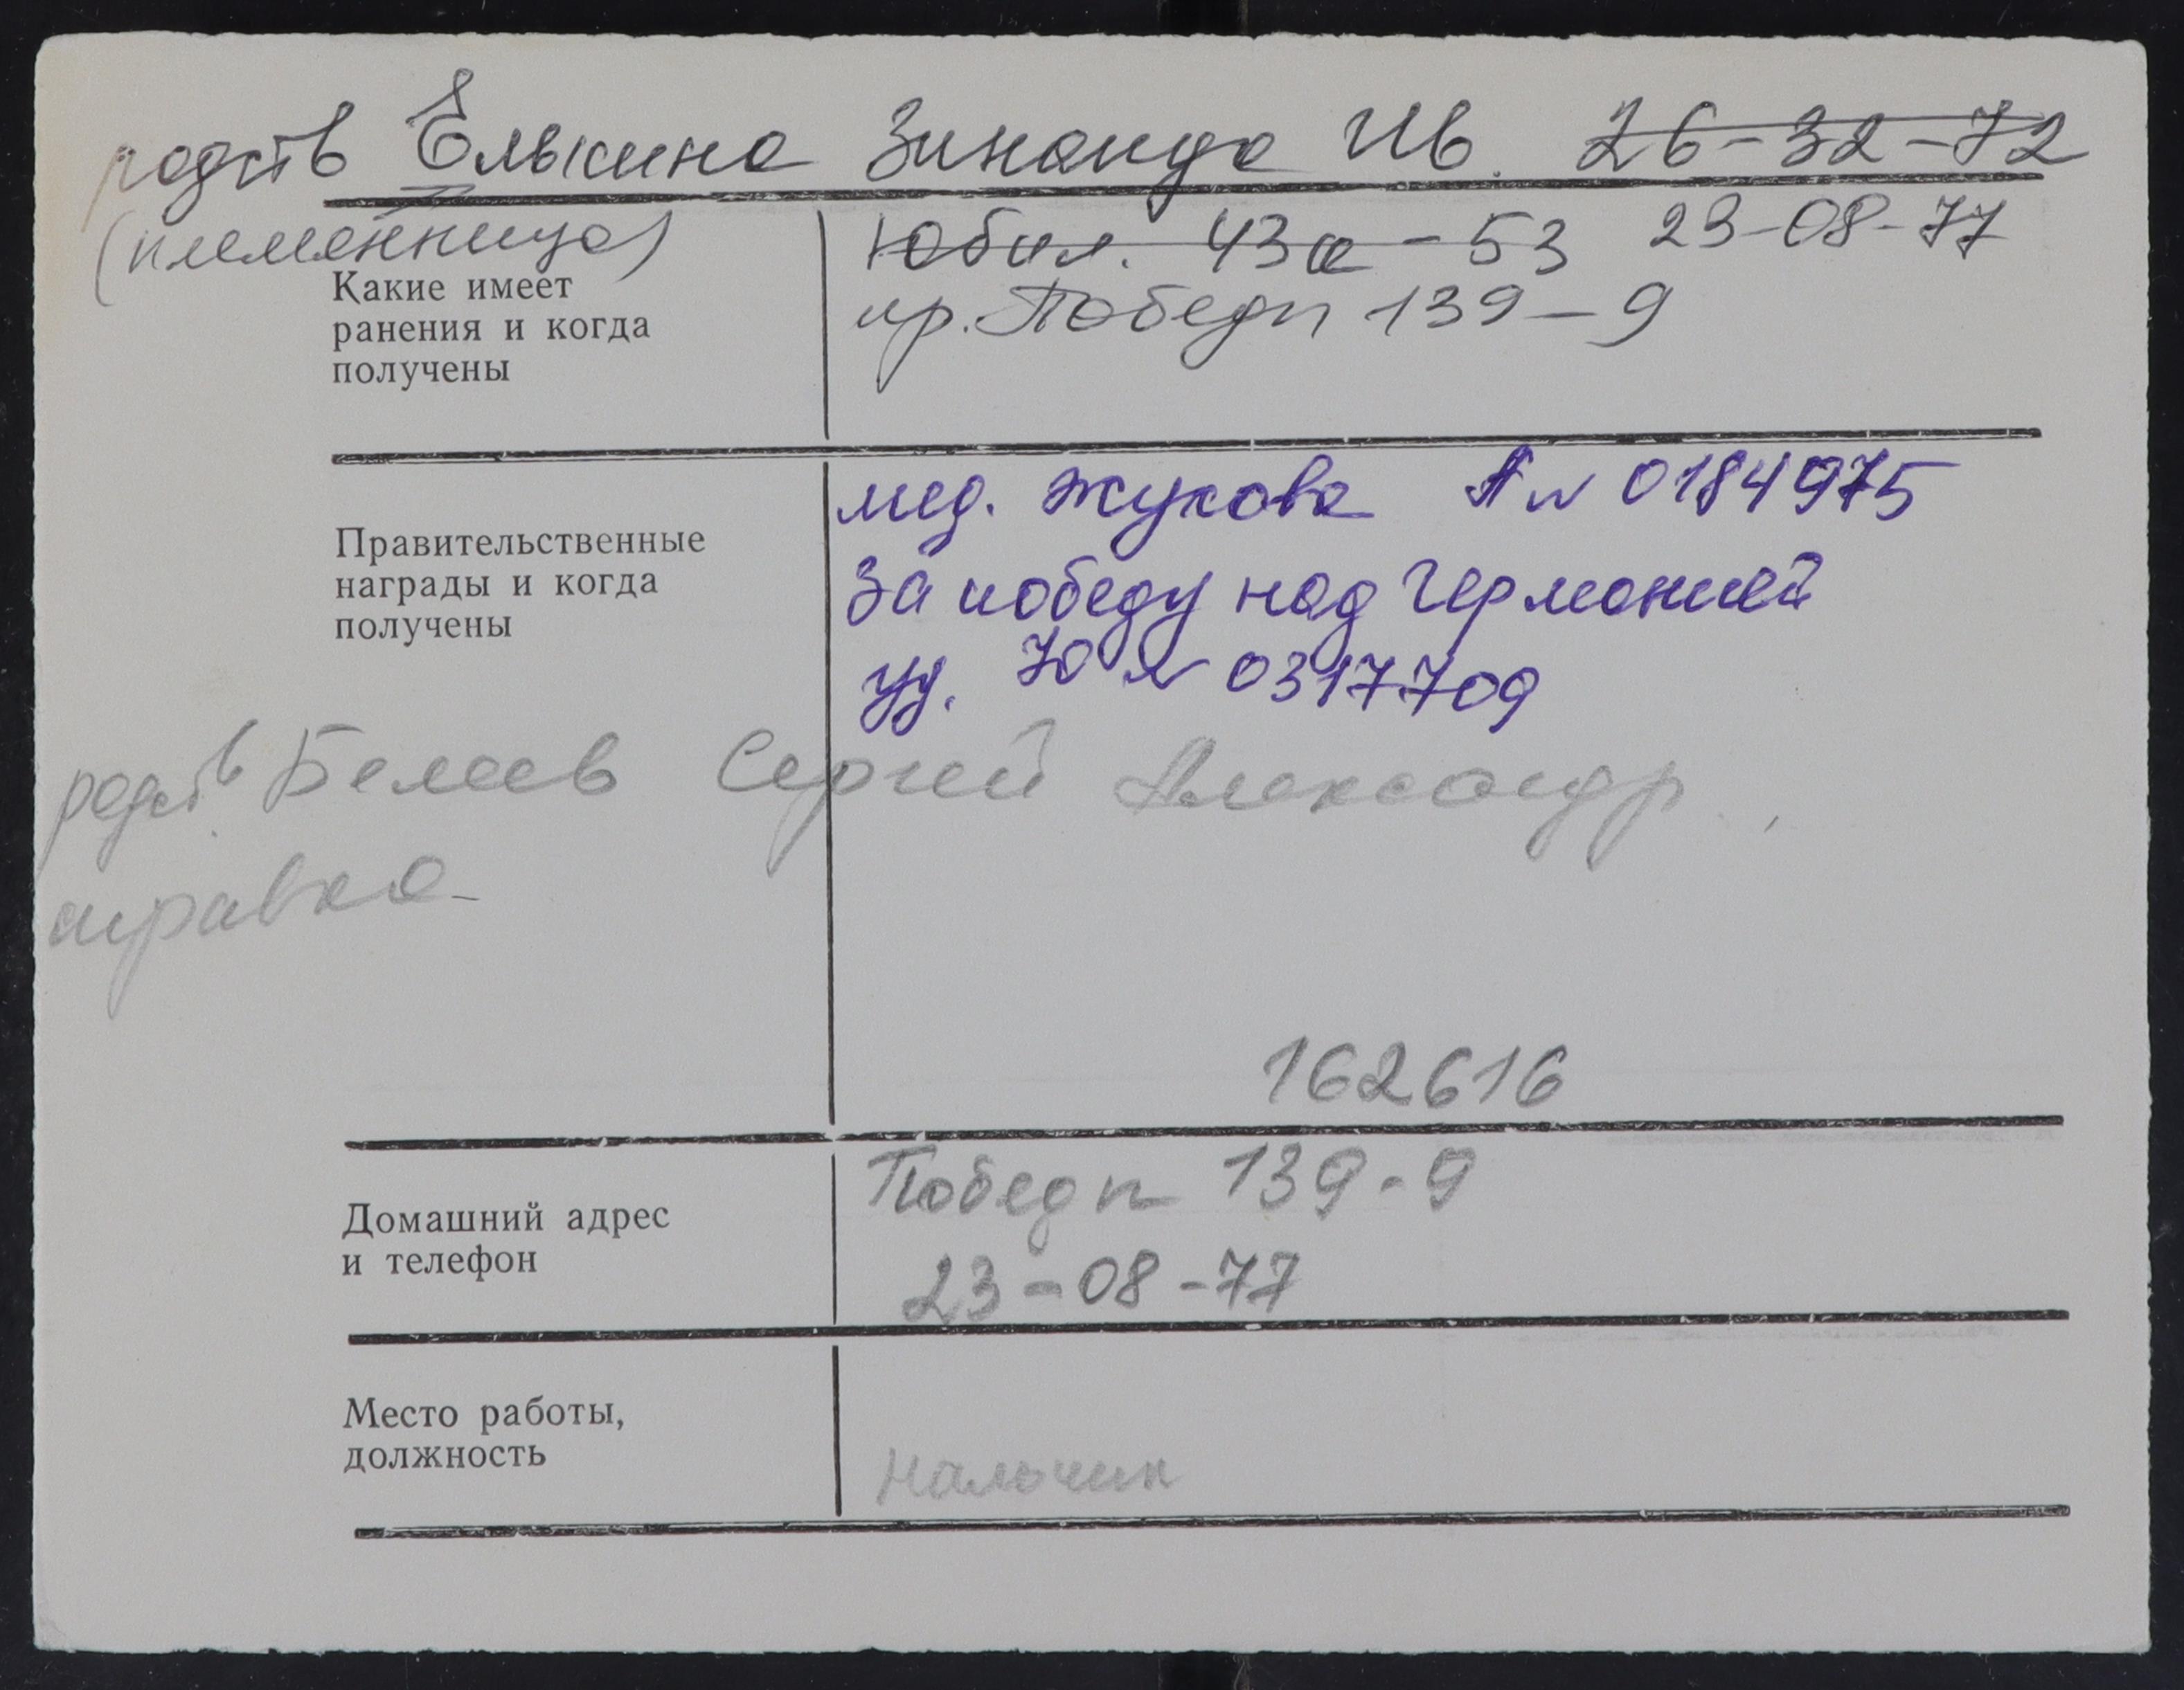 родств Елькина Зинаида Ив. 26-32-72
(племянница)
Юбил. 43а - 53 23-08-77
пр. Победы 139 - 9
Какие имеет
ранения и когда
получены
мед. Жукова А № 0184975
За победу над Германией
уд. Ю № 0317709
Правительственные
награды и когда
получены
родств Беляев Сергей Александр.
справка
162616
Победы 139-9
23-08-77
Домашний адрес
и телефон
Место работы,
должность
Нальчик